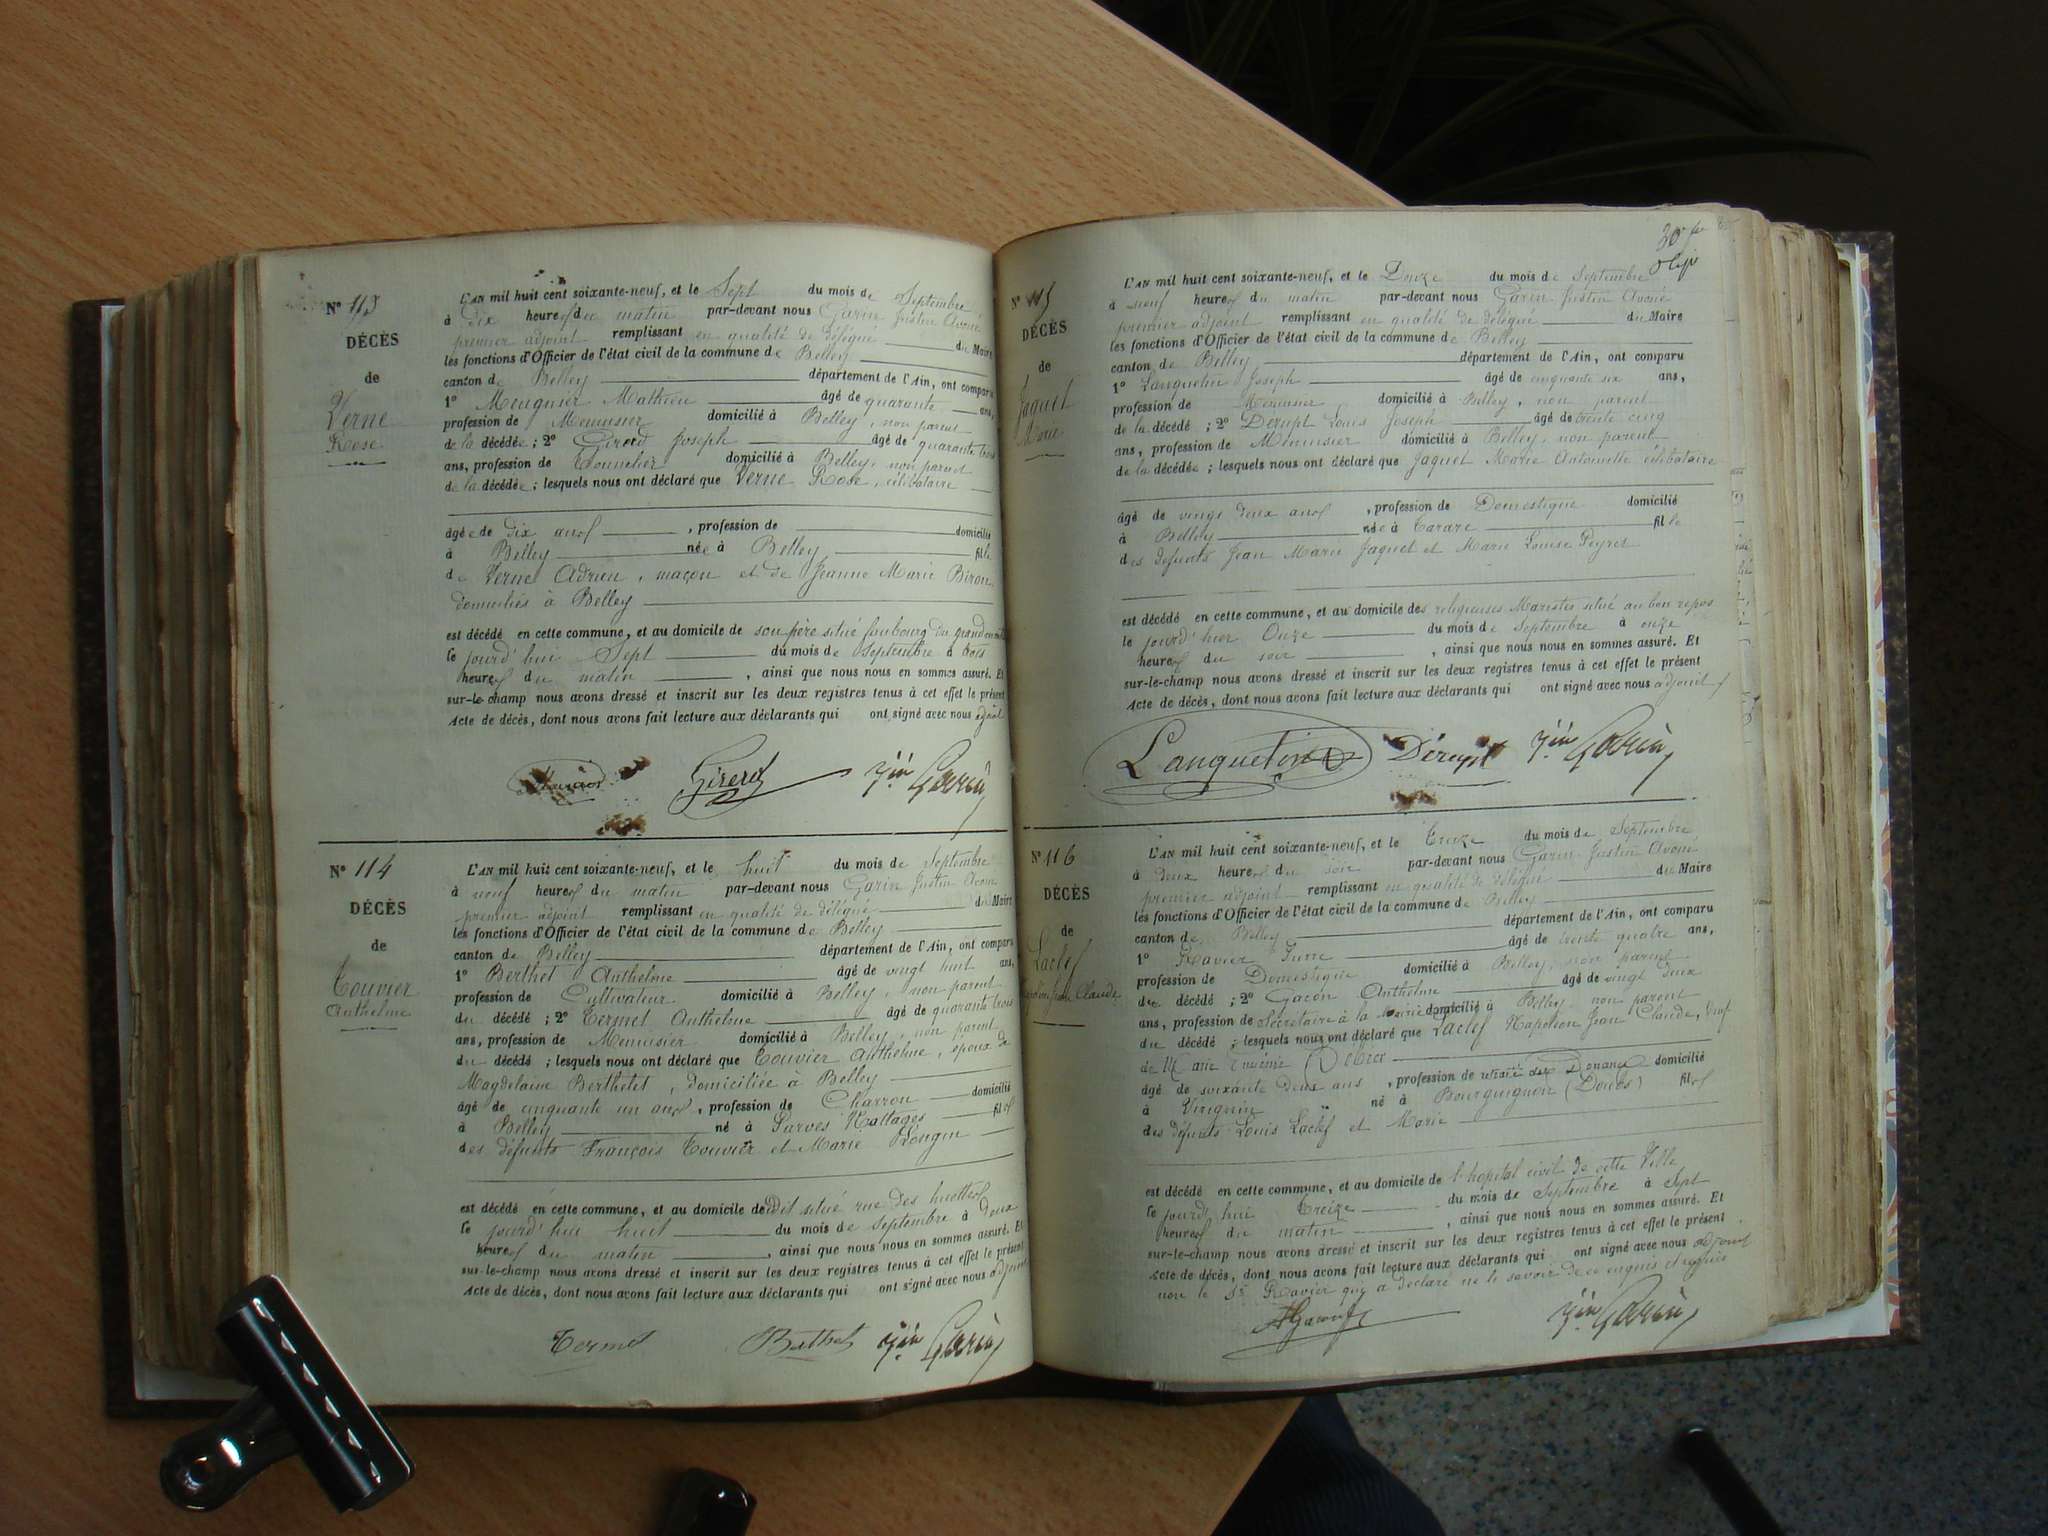 N° 113
DÉCÈS
de
Verne
Rose
L'AN mil huit cent soixante-neuf, et le Sept du mois de Septembre
à Dix heures du matin par-devant nous Garin Justin Avoué
premier adjoint remplissant en qualité de délégué du Maire
les fonctions d'Officier de l'état civil de la commune de Belley
canton de Belley département de l'Ain, ont comparu
1° Meugnier Mathieu âgé de quarante ans,
profession de Menuisier domicilié à Belley, non parent
de la décédée ; 2° Girerd Joseph âgé de quarante trois
ans, profession de Tonnelier domicilié à Belley, non parent
de la décédée ; lesquels nous ont déclaré que Verne Rose, célibataire
âgée de dix ans, profession de domicilié
à Belley née à Belley fille
de Verne Adrien, maçon et de Jeanne Marie Biron
domiciliés à Belley
est décédé en cette commune, et au domicile de son père situé faubourg du grand
le jourd'hui Sept du mois de Septembre à trois
heures du matin, ainsi que nous nous en sommes assuré. Et
sur-le-champ nous avons dressé et inscrit sur les deux registres tenus à cet effet le présent
acte de décès, dont nous avons fait lecture aux déclarants qui ont signé avec nous adjoint
Girerd Jin Garin
N° 114
DÉCÈS
de
Touvier
Anthelme
L'AN mil huit cent soixante-neuf, et le huit du mois de Septembre
à neuf heures du matin par-devant nous Garin Justin Avoué
premier adjoint remplissant en qualité de délégué du Maire
les fonctions d'Officier de l'état civil de la commune de Belley
canton de Belley département de l'Ain, ont comparu
1° Berthet Anthelme âgé de vingt huit ans,
profession de Cultivateur domicilié à Belley, non parent
du décédé ; 2° Termet Anthelme âgé de quarante trois
ans, profession de Menuisier domicilié à Belley, non parent
du décédé ; lesquels nous ont déclaré que Touvier Anthelme, époux de
Magdelaine Berthelet, domiciliée à Belley
âgé de cinquante un ans, profession de Charron domicilié
à Belley né à Parves Nattages fils
des défunts François Touvier et Marie
est décédé en cette commune, et au domicile dudit situé rue des
le jourd'hui huit du mois de septembre à deux
heures du matin, ainsi que nous nous en sommes assuré. Et
sur-le-champ nous avons dressé et inscrit sur les deux registres tenus à cet effet le présent
acte de décès, dont nous avons fait lecture aux déclarants qui ont signé avec nous adjoint
Termet Berthet Jin Garin
N° 115
DÉCÈS
de
Jaquet
Marie
L'AN mil huit cent soixante-neuf, et le Douze du mois de Septembre
à neuf heures du matin par-devant nous Garin Justin Avoué
premier adjoint remplissant en qualité de délégué du Maire
les fonctions d'Officier de l'état civil de la commune de Belley
canton de Belley département de l'Ain, ont comparu
1° Languetin Joseph âgé de cinquante six ans,
profession de Menuisier domicilié à Belley, non parent
de la décédé ; 2° Dérupt Louis Joseph âgé de trente cinq
ans, profession de Menuisier domicilié à Belley, non parent
de la décédée ; lesquels nous ont déclaré que Jaquet Marie Antoinette célibataire
âgé de vingt deux ans, profession de Domestique domicilié
à Belley née à Tarare fille
des défunts Jean Marie Jaquet et Marie Louise Peyret
est décédé en cette commune, et au domicile des religieuses Maristes situé au bon repos
le jourd'hier Onze du mois de Septembre à onze
heures du soir, ainsi que nous nous en sommes assuré. Et
sur-le-champ nous avons dressé et inscrit sur les deux registres tenus à cet effet le présent
acte de décès, dont nous avons fait lecture aux déclarants qui ont signé avec nous adjoint
Languetin Dérupt Jin Garin
N° 116
DÉCÈS
de
Laclef
Napoléon Jean Claude
L'AN mil huit cent soixante-neuf, et le Treize du mois de Septembre
à deux heures du soir par-devant nous Garin Justin Avoué
premier adjoint remplissant en qualité de délégué du Maire
les fonctions d'Officier de l'état civil de la commune de Belley
canton de Belley département de l'Ain, ont comparu
1° Ravier Pierre âgé de trente quatre ans,
profession de Domestique domicilié à Belley, non parent
du décédé ; 2° Gacon Anthelme âgé de vingt deux
ans, profession de Secrétaire à la mairie domicilié à Belley non parent
du décédé ; lesquels nous ont déclaré que Laclef Napoléon Jean Claude, veuf
de Marie
âgé de soixante deux ans, profession de retraité des Douanes domicilié
à Virignin né à Bourguignon (Doubs) fils
des défunts Louis Laclef et Marie
est décédé en cette commune, et au domicile de l'hopital civil de cette Ville
le jourd'hui Treize du mois de Septembre à Sept
heures du matin, ainsi que nous nous en sommes assuré. Et
sur-le-champ nous avons dressé et inscrit sur les deux registres tenus à cet effet le présent
acte de décès, dont nous avons fait lecture aux déclarants qui ont signé avec nous adjoint
non le Sr Ravier qui a déclaré ne le savoir de ce enquis et requis
AGacon Jin Garin